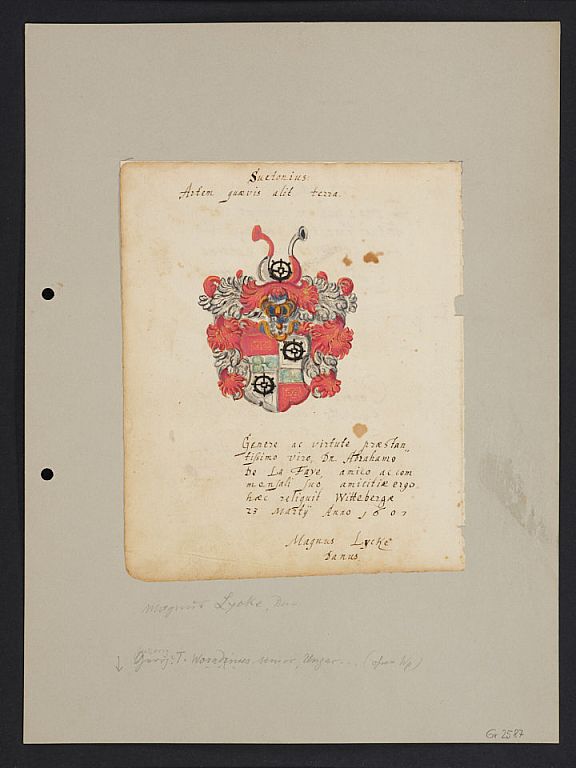 Suetonius.
Artem quævis alit terra.
Genere ac virtute præstan
tissimo viro, Dn. Abrahamo
De La Faye, amico ac com
mensali suo amicitiæ ergo
hæc reliquit Wittebergæ
23 Martij Anno 1607
Magnus Lycke
Danus.
Magnus Lycke, Dan
T. senior, Ungar...
Gr 2587